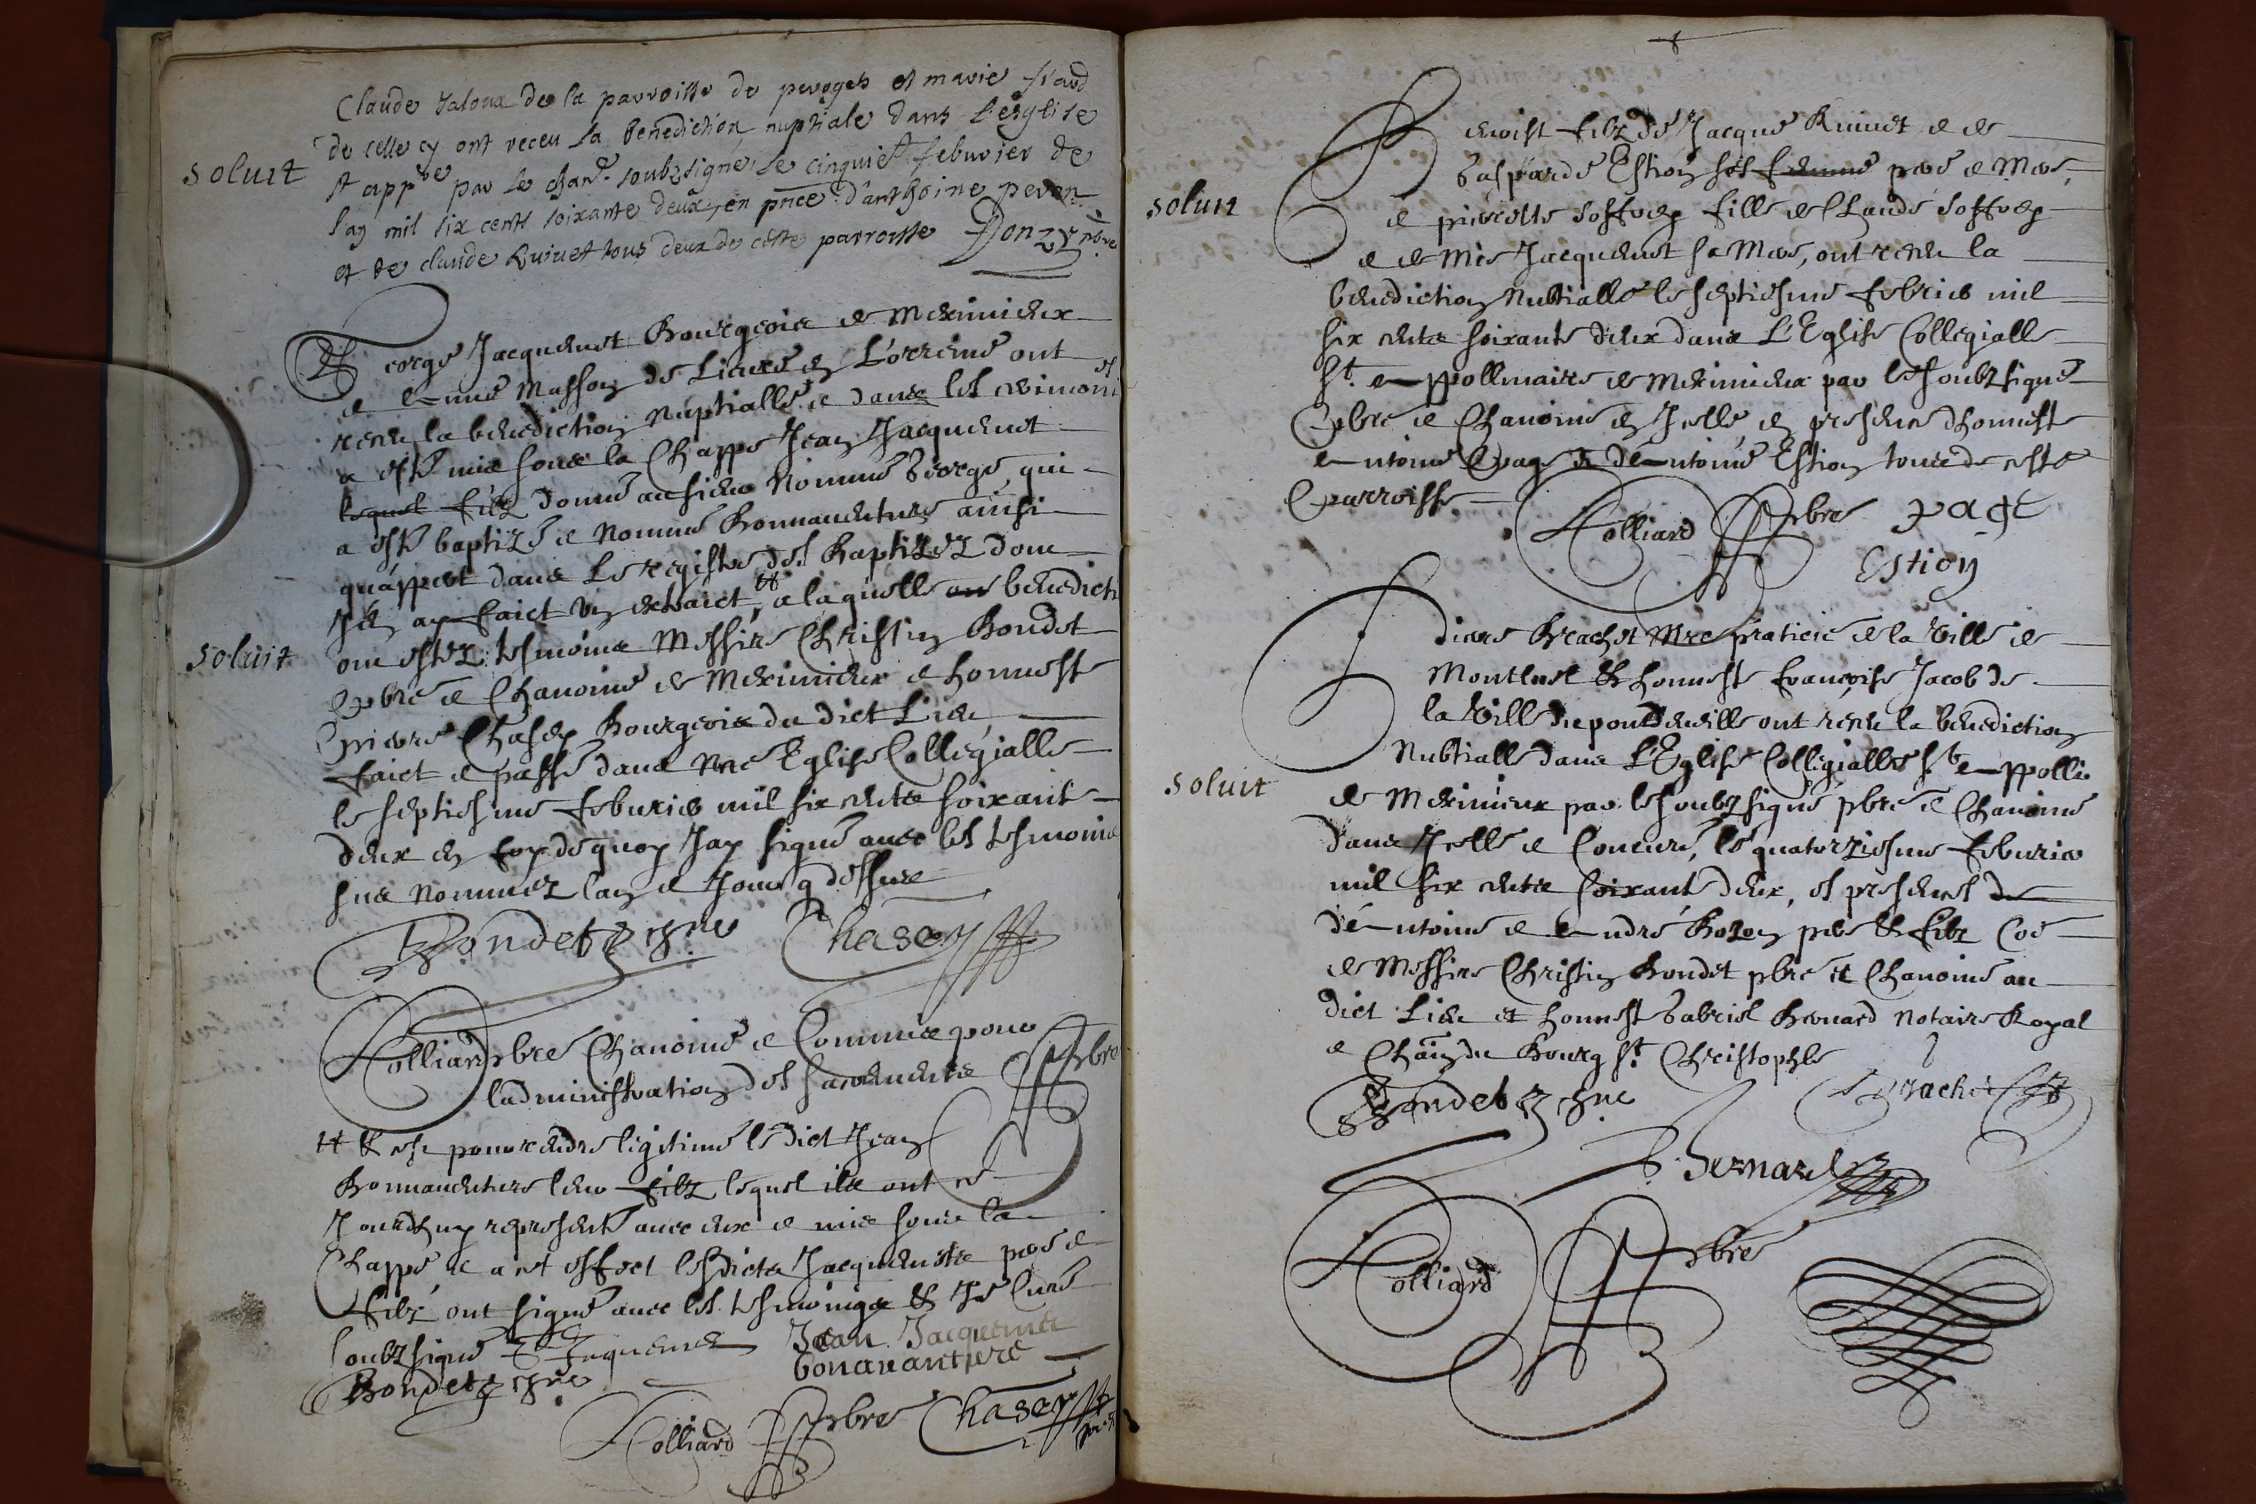 Claude Jaloux de la parroisse de peroges et marie
de celle cy ont receu la benediction nuptiale dans l'esglise
soluit
st app.re par le chan.e soubzsigné le cinquie.e feburier de
l'an mil six cents soixante deux, en pnce d'anthoine
et de claude Quinet tous deux de ceste parroisse Donzy pbre
George Jacquemet Bourgeois de Meximieux
et Masson de en Lorreine ont
receu la benediction Nuptialle et dans les cerimoni es
a esté mis soubz la Chappe Jean Jacquemet
lequel filz donné au sieur Nommé George, qui
a esté baptizé et Nommé Bonnauenture ainsi
qu'appert dans Le registre des Baptizez dont
j'en ay faict un extraict, # a laquelle benedicti
soluit
on estez tesmoins Messire Christin Bondet
pbre et Chanoine de Meximieux et honneste
pierre Chasey Bourgeois du dict Lieu
faict et passé dans Nre Eglise Collegialle
le septiesme feburier mil six cents soixante
deux en foy de quoy J'ay signé auec les tesmoins
sus Nommez l'an et Jour q dessus
Bondet chne Chasey
Colliard pbre Chanoine et Commis pour
l'administration des sacrements
# Et ce pour rendre legitime le dict Jean
Bonnauenture leur filz lequel ils ont ce
Jourdhuy representé auec eux et mis soubz la
Chappe, et a cet effect lesdicts Jacquemets pere et
filz ont signé auec les tesmoings et Je Curé
soubzsigné Jaquemet Jean Jacquemet
bonavanture
Bondet chne
Colliard pbre Chasey
Benoist filz de Jacque Quinet et de
Gasparde Estion ses femme pere et Mere,
soluit
et pierrette Soffrey fille de Claude Soffrey
et de Mie Jacquemet sa Mere, ont receu la
benediction Nubtialle le septiesme febrier mil
six cents soixante deux dans L'Eglise Collegialle
St. Appollinaire de Meximieux par le soubzsigné
pbre et Chanoine en Jcelle en presence d'honneste
Antoine page et d'Antoine Estion tous de ceste
parroisse
Colliard pbre page
Estion
Brachet Mre praticié de la Ville de
Montluel et honneste francoise Jacob de
la Ville du pont de veille ont receu la benediction
Nubtialle dans L'Eglise Collegialle St. Appolli.
soluit
de Meximieux par le soubzsigné pbre et Chanoine
dans Jcelle et Concuré, le quatorziesme feburier
mil six cents soixante deux, et presences de
d'Antoine et Andre Bozon pere et filz Coe
de Messire Christin Bondet pbre et Chanoine au
dict Lieu et honnest Gabriel Bernard Notaire Royal
et du Bourg St. Christophle
Bondet chne Brachet
Bernard
Colliard pbre